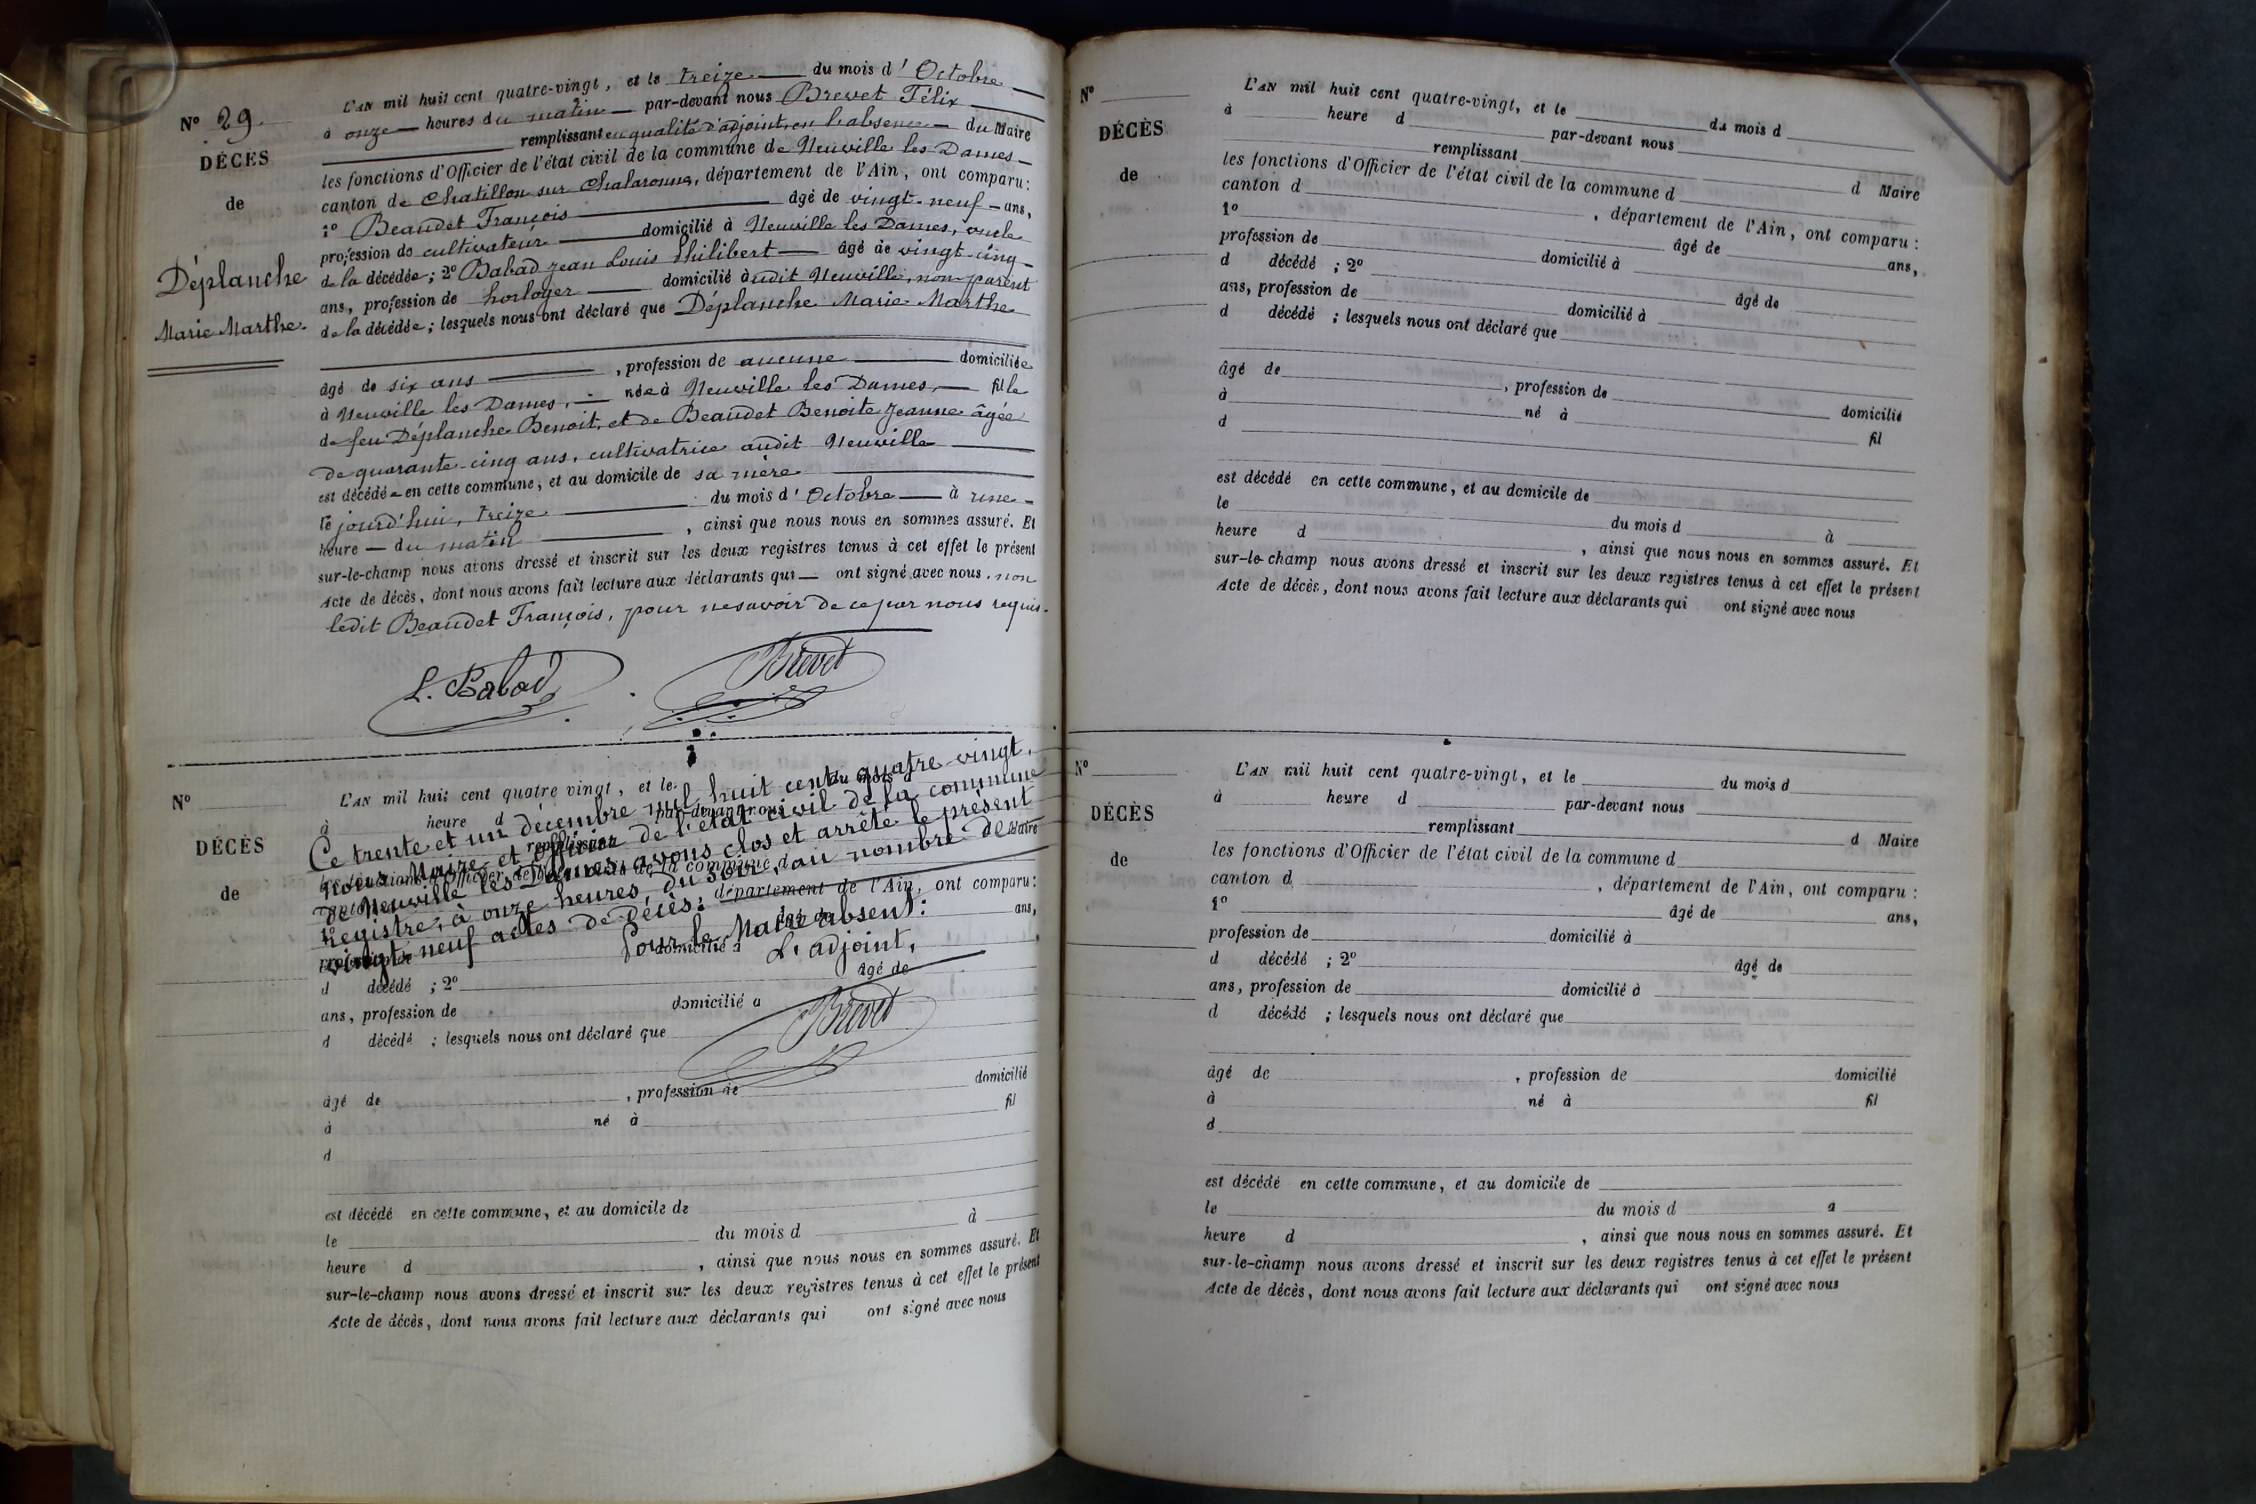 N° 29.
DÉCÈS
de
Déplanche
Marie Marthe.
L'AN mil huit cent quatre-vingt, et le treize du mois d' Octobre
à onze heures du matin par-devant nous Brevet Félix
remplissant en qualité d'adjoint, en l'absence du Maire
les fonctions d'Officier de l'état civil de la commune de Neuville les Dames
canton de Chatillon sur Chalaronne, département de l'Ain, ont comparu:
1° Beaudet François âgé de vingt-neuf ans,
profession de cultivateur domicilié à Neuville les Dames, oncle
de la décédée; 2° Babad Jean Louis Philibert âgé de vingt-cinq
ans, profession de horloger domicilié à udit Neuville, non parent
de la décédée; lesquels nous ont déclaré que Déplanche Marie Marthe
âgé de six ans, profession de aucune domiciliée
à Neuville les Dames, née à Neuville les Dames, fille
de feu Déplanche Benoit, et de Beaudet Benoite Jeanne âgée
de quarante-cinq ans, cultivatrice audit Neuville
est décédée en cette commune, et au domicile de sa mère
le jourd'hui, treize du mois d' Octobre à une
heure du matin, ainsi que nous nous en sommes assuré. Et
sur-le-champ nous avons dressé et inscrit sur les deux registres tenus à cet effet le présent
Acte de décès, dont nous avons fait lecture aux déclarants qui ont signé avec nous, non
ledit Beaudet François, pour ne savoir de ce par nous requis.
L. Babad Brevet
N°
DÉCÈS
de
L'AN mil huit cent quatre vingt, et le du mois d
à heure d par-devant nous
remplissant Maire
les fonctions d'Officier de l'état civil de la commune d
département de l'Ain, ont comparu:
âgé de ans,
domicilié à
Ce trente et un décembre mil huit cent quatre vingt,
nous, Maire et officier de l'état civil de la commune
de Neuville les Dames, avons clos et arrêté le présent
registre, à onze heures du soir, au nombre de
vingt-neuf actes de décès.
Pour le Maire absent:
L'adjoint,
Brevet
d décédé ; 2° âgé de
ans, profession de domicilié a
d décédé ; lesquels nous ont déclaré que
âgé de , profession de domicilié
à né à fil
d
est décédé en cette commune, et au domicile de
le du mois d à
heure d , ainsi que nous nous en sommes assuré. Et
sur-le-champ nous avons dressé et inscrit sur les deux registres tenus à cet effet le présent
Acte de décès, dont nous avons fait lecture aux déclarants qui ont signé avec nous
N°
DÉCÈS
de
L'AN mil huit cent quatre-vingt, et le du mois d
à heure d par-devant nous
remplissant d Maire
les fonctions d'Officier de l'état civil de la commune d
canton d , département de l'Ain, ont comparu :
1° âgé de ans,
profession de domicilié à
d décédé ; 2° âgé de
ans, profession de domicilié à
d décédé ; lesquels nous ont déclaré que
âgé de , profession de domicilié
à né à fil
d
est décédé en cette commune, et au domicile de
le du mois d à
heure d , ainsi que nous nous en sommes assuré. Et
sur-le-champ nous avons dressé et inscrit sur les deux registres tenus à cet effet le présent
Acte de décès, dont nous avons fait lecture aux déclarants qui ont signé avec nous
N°
DÉCÈS
de
L'AN mil huit cent quatre-vingt, et le du mois d
à heure d par-devant nous
remplissant d Maire
les fonctions d'Officier de l'état civil de la commune d
canton d , département de l'Ain, ont comparu :
1° âgé de ans,
profession de domicilié à
d décédé ; 2° âgé de
ans, profession de domicilié à
d décédé ; lesquels nous ont déclaré que
âgé de , profession de domicilié
à né à fil
d
est décédé en cette commune, et au domicile de
le du mois d a
heure d , ainsi que nous nous en sommes assuré. Et
sur-le-champ nous avons dressé et inscrit sur les deux registres tenus à cet effet le présent
Acte de décès, dont nous avons fait lecture aux déclarants qui ont signé avec nous